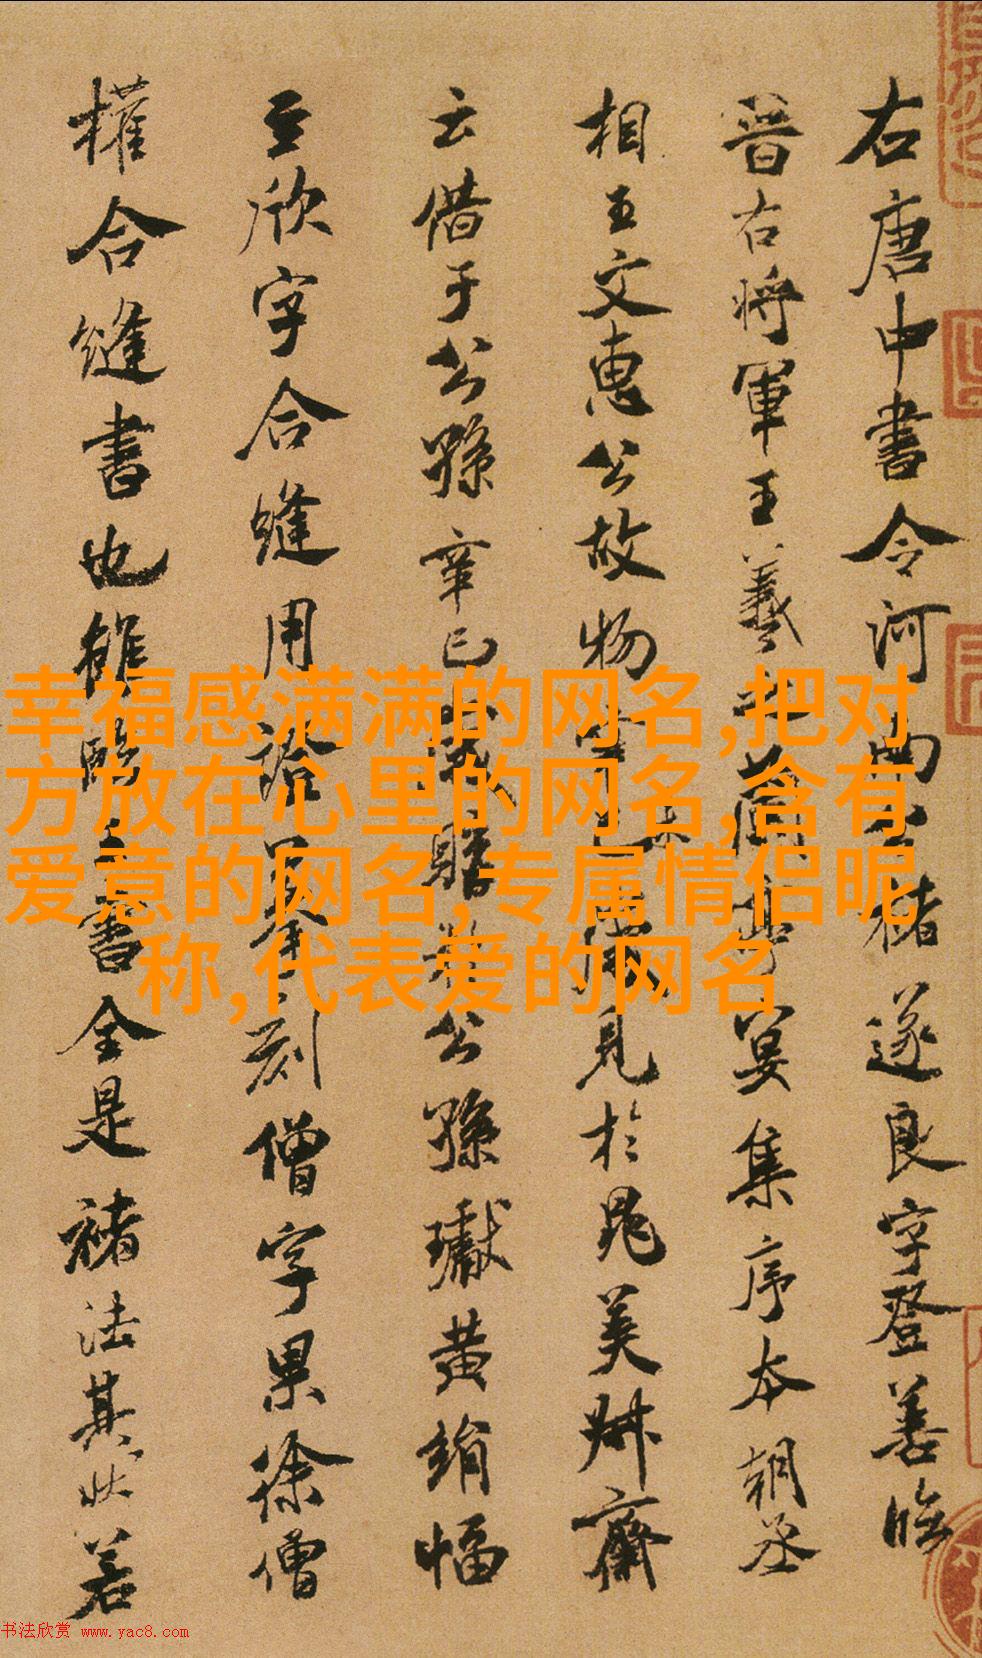 右唐中書令河南褚遂良字登善臨
晉右將軍王羲之蘭亭宴集序本朝丞
相王文惠公故物
見於晁美叔齋
云借于公孫辛巳歲購公孫瓛黃絹幅
至欣字合縫用
刻僧字果徐僧
權合縫書也雖臨王書全是褚法其狀若
幸福感满满的网名,把对
方放在心里的网名,含有
爱意的网名,专属情侣昵
称,代表爱的网名
书法欣赏 www.yac8.com